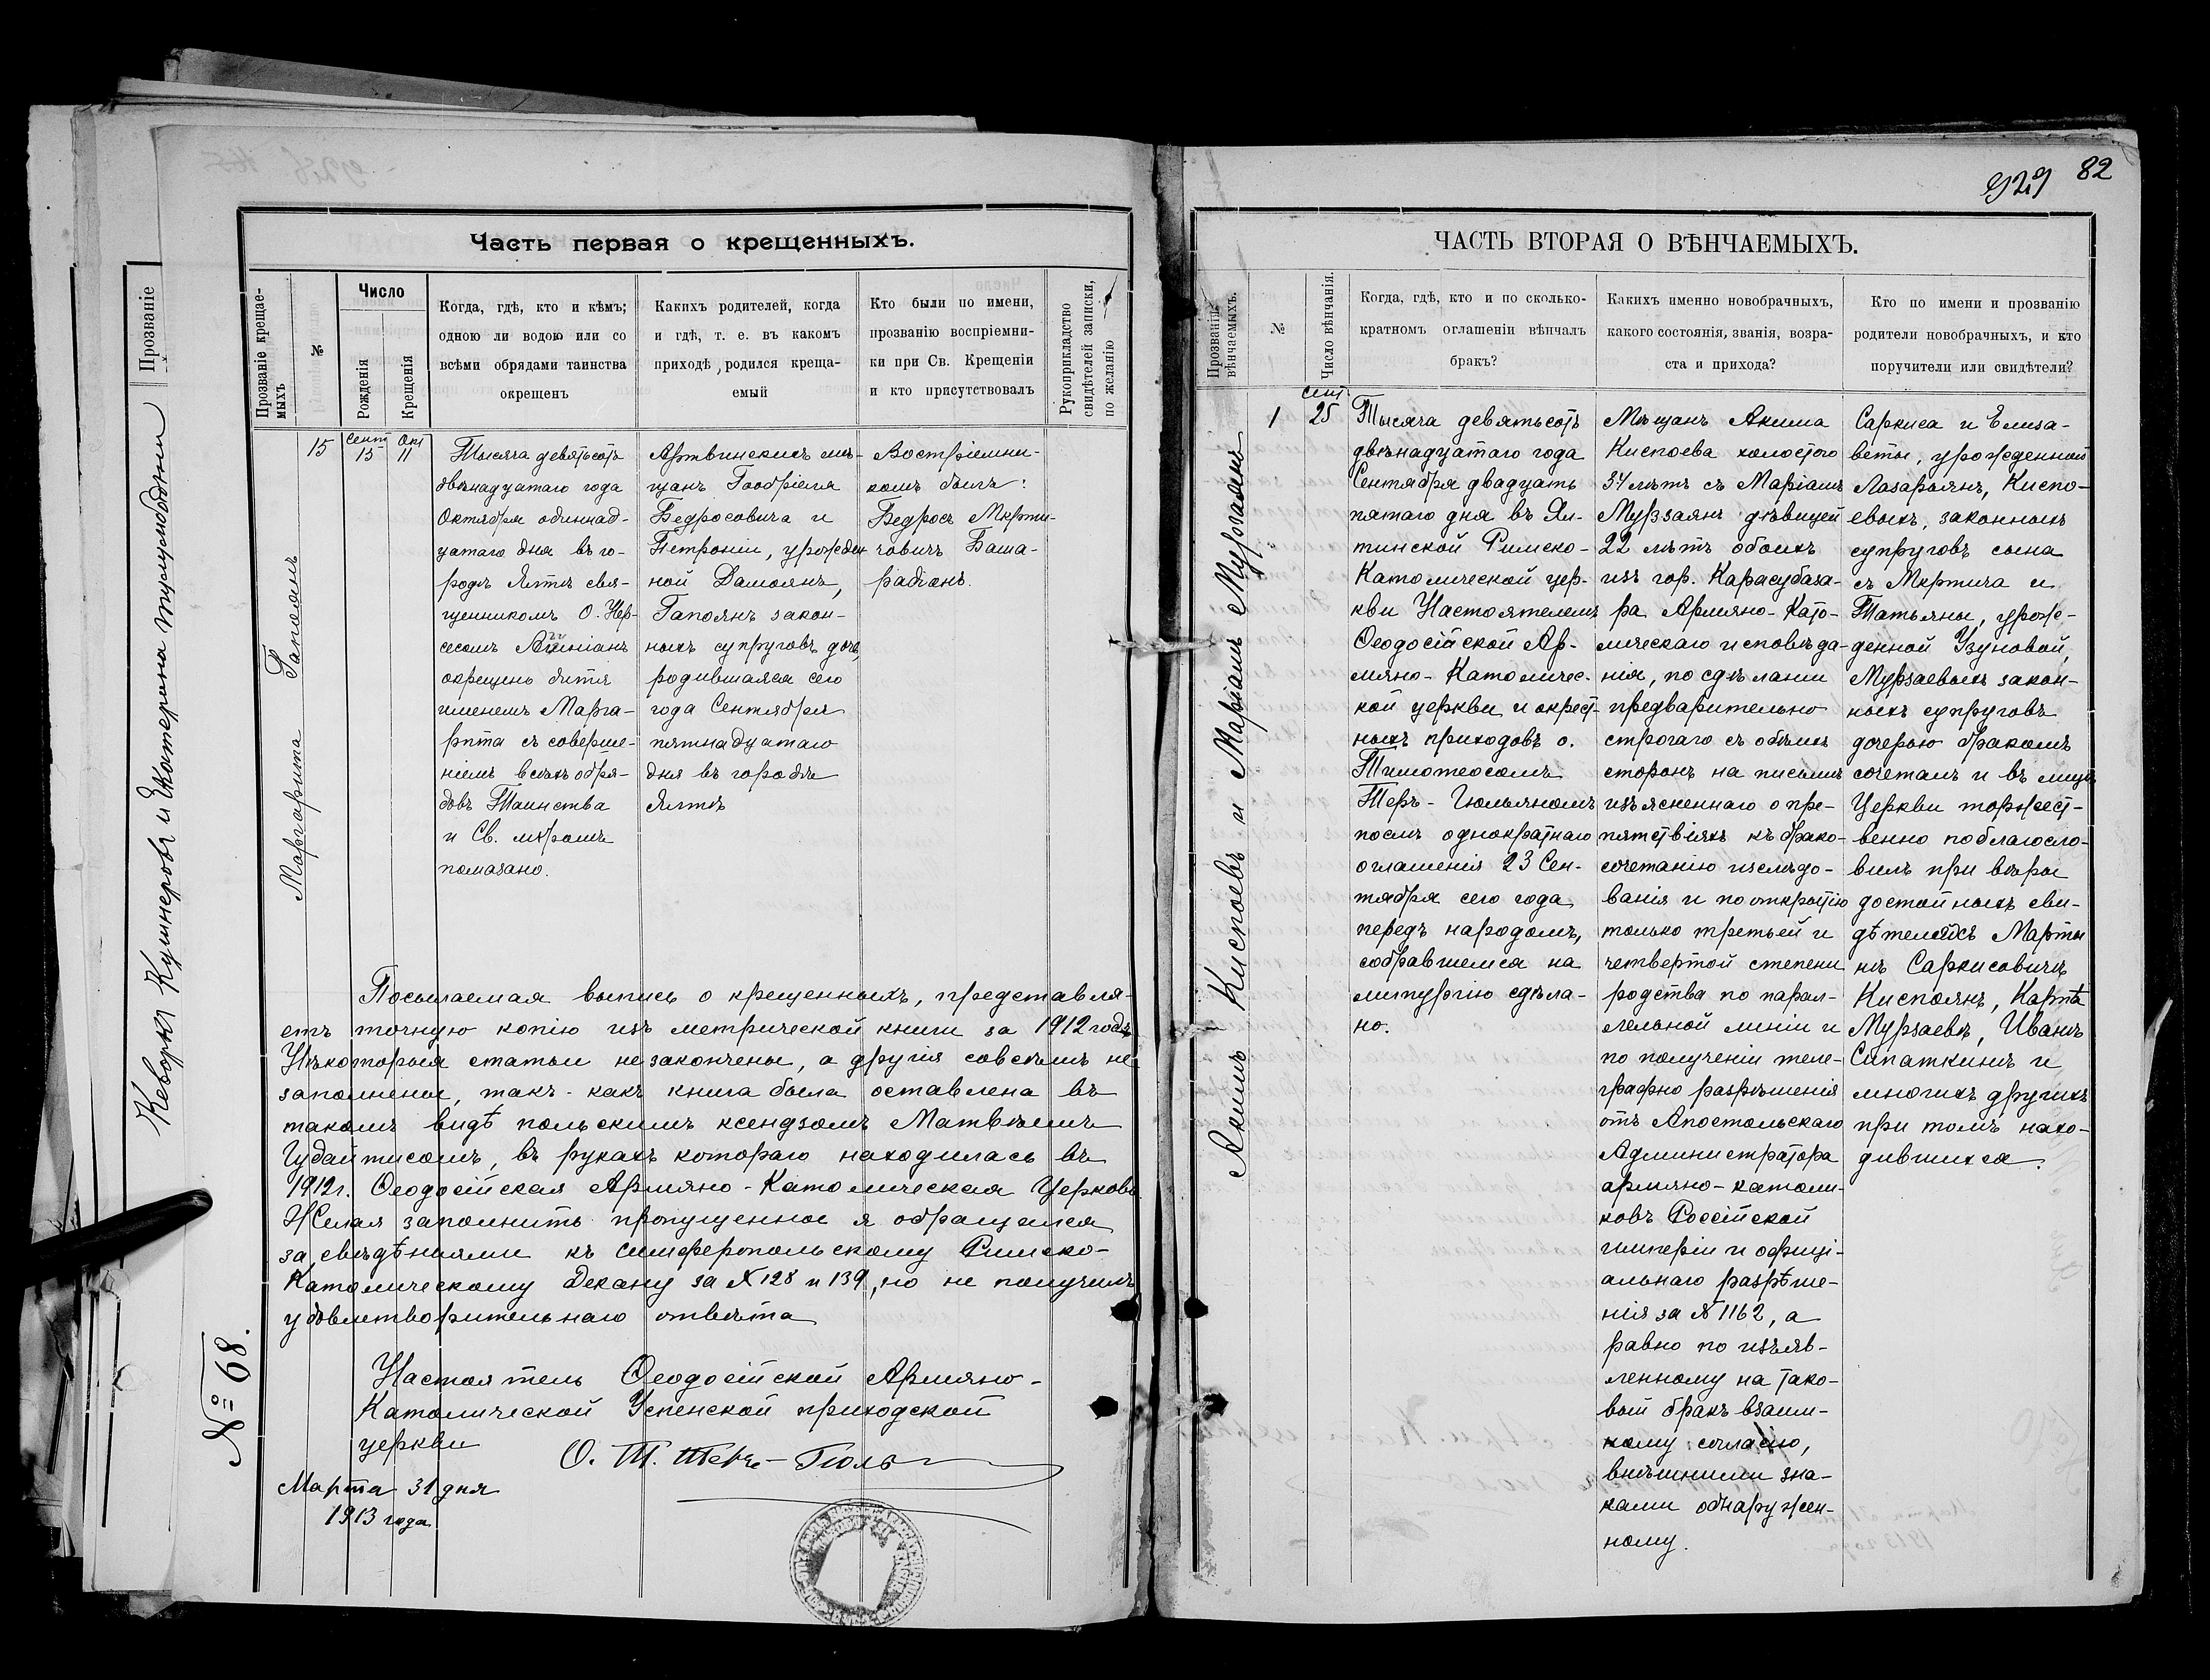 Прозваніе
Кеворкъ Кушнеровъ и Екатерина
Часть первая о крещенныхъ.
Прозваніе крещае-
мыхъ
№
Число
Рожденія
Крещенія
Когда, гдѣ, кто и кѣмъ;
одною ли водою или со
всѣми обрядами таинства
окрещенъ
Какихъ родителей, когда
и гдѣ, т. е. въ какомъ
приходѣ, родился креща-
емый
Кто были по имени,
прозванію воспріемни-
ки при Св. Крещеніи
и кто присутствовалъ
Рукоприкладство
свидѣтелей записки,
по желанію
Маргарита Гапоянъ
15
Сент
15
Окт
11
Тысяча девятьсотъ
двѣнадцатаго года
Октября одиннад-
цатаго дня въ го-
родѣ Ялтѣ свя-
щенникомъ О. Нер-
сесомъ
окрещено дитя
именемъ Марга-
рита съ соверше-
ніемъ всѣхъ обря-
довъ Таинства
и Св. мѵромъ
помазано.
Артвинскихъ мѣ-
щанъ Габріеля
Бедросовича и
Петроніи, урожден
ной Дамоянъ,
Гапоянъ закон-
ныхъ супруговъ дочь,
родившаяся сего
года Сентября
пятнадцатаго
дня въ городѣ
Ялтѣ
Воспріемни-
комъ былъ:
Бедросъ Мкрти-
човичъ Баша-
радіанъ.
Посылаемая выпись о крещенныхъ, представля-
етъ точную копію изъ метрической книги за 1912 годъ
Нѣкоторыя статьи незакончены, а другія совсѣмъ не
заполнены, такъ-какъ книга была оставлена въ
такомъ видѣ польскимъ ксендзомъ Матвѣемъ
Гудайтисомъ, въ рукахъ котораго находилась въ
1912г. Ѳеодосійская Армяно-Католическая Церковь
Желая заполнить пропущенное я обращался
за свѣдѣніями къ Симферопольскому Римско-
Католическому Декану за № 128 и 139, но не получилъ
удовлетворительнаго отвѣта
Настоятель Ѳеодосійской Армяно-
Католической Успенской приходской
церкви О. Т. Теръ-Гюль
Марта 31 дня
1913 года
№ 68.
929 82
ЧАСТЬ ВТОРАЯ О ВѢНЧАЕМЫХЪ.
Прозваніе
вѣнчаемыхъ.
№
Число вѣнчанія.
Когда, гдѣ, кто и по сколько-
кратномъ оглашеніи вѣнчалъ
бракъ?
Какихъ именно новобрачныхъ,
какого состоянія, званія, возра-
ста и прихода?
Кто по имени и прозванію
родители новобрачныхъ, и кто
поручители или свидѣтели?
Акимъ Киспоевъ и Маріамъ Мурзаянъ
1
Сент.
25
Тысяча девятьсотъ
двѣнадцатаго года
Сентября двадцать
пятаго дня въ Ял-
тинской Римско-
Католической цер-
кви Настоятелемъ
Ѳеодосійской Ар-
мяно-Католичес-
кой церкви и окрест-
ныхъ приходовъ о.
Тимотеосомъ
Теръ-Гюльяномъ
послѣ однократнаго
оглашенія 23 Сен-
тября сего года
передъ народомъ,
собравшемся на
литургію сдѣла-
но.
Мѣщанъ Акима
Киспоева холостого
34 лѣтъ съ Маріамъ
Мурзаянъ дѣвицей
22 лѣтъ обоихъ
изъ гор. Карасубаза-
ра Армяно-Като-
лическаго исповѣда-
нія, по сдѣлании
предварительно
строгаго съ обѣихъ
сторонъ на письмѣ
изъясненнаго о пре-
пятствіяхъ къ брако-
сочетанію изслѣдо-
ванія и по открытію
только третьей и
четвертой степени
родства по парал-
лельной линіи и
по полученіи теле-
графно разрѣшенія
отъ Апостольскаго
Администратора
армяно-католи-
ковъ Россійской
имперіи и офиці-
альнаго разрѣше-
нія за № 1162, а
равно по изъяв-
ленному на тако-
вый бракъ взаим-
ному согласію,
внѣшними зна-
ками обнаружен-
ному.
Саркиса и Елиза-
веты, урожденной
Лазарьянъ, Киспо-
евыхъ, законныхъ
супруговъ сына
съ Мкртича и
Татьяны, урож-
денной Узуновой,
Мурзаевыхъ закон-
ныхъ супруговъ
дочерью бракомъ
сочеталъ и въ лицѣ
Церкви торжест-
венно поблагосло-
вилъ при вѣры
достойныхъ сви-
дѣтеляхъ Марты
нѣ Саркисовичѣ
Киспоянъ, Карпѣ
Мурзаевѣ, Иванѣ
Сипаткинѣ и
многихъ другихъ
при томъ нахо-
дившихся.